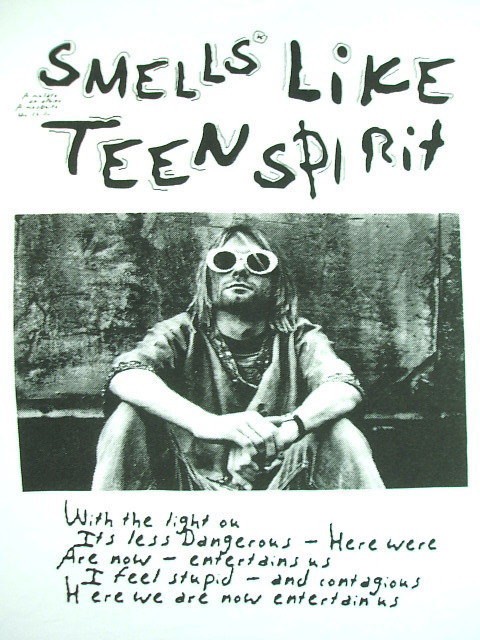 SMELLS LIKE
TEEN SPIRit
With the light on
Its less Dangerous - Here were
Are now - entertains us
I feel stupid - and contagious
Here we are now entertain us